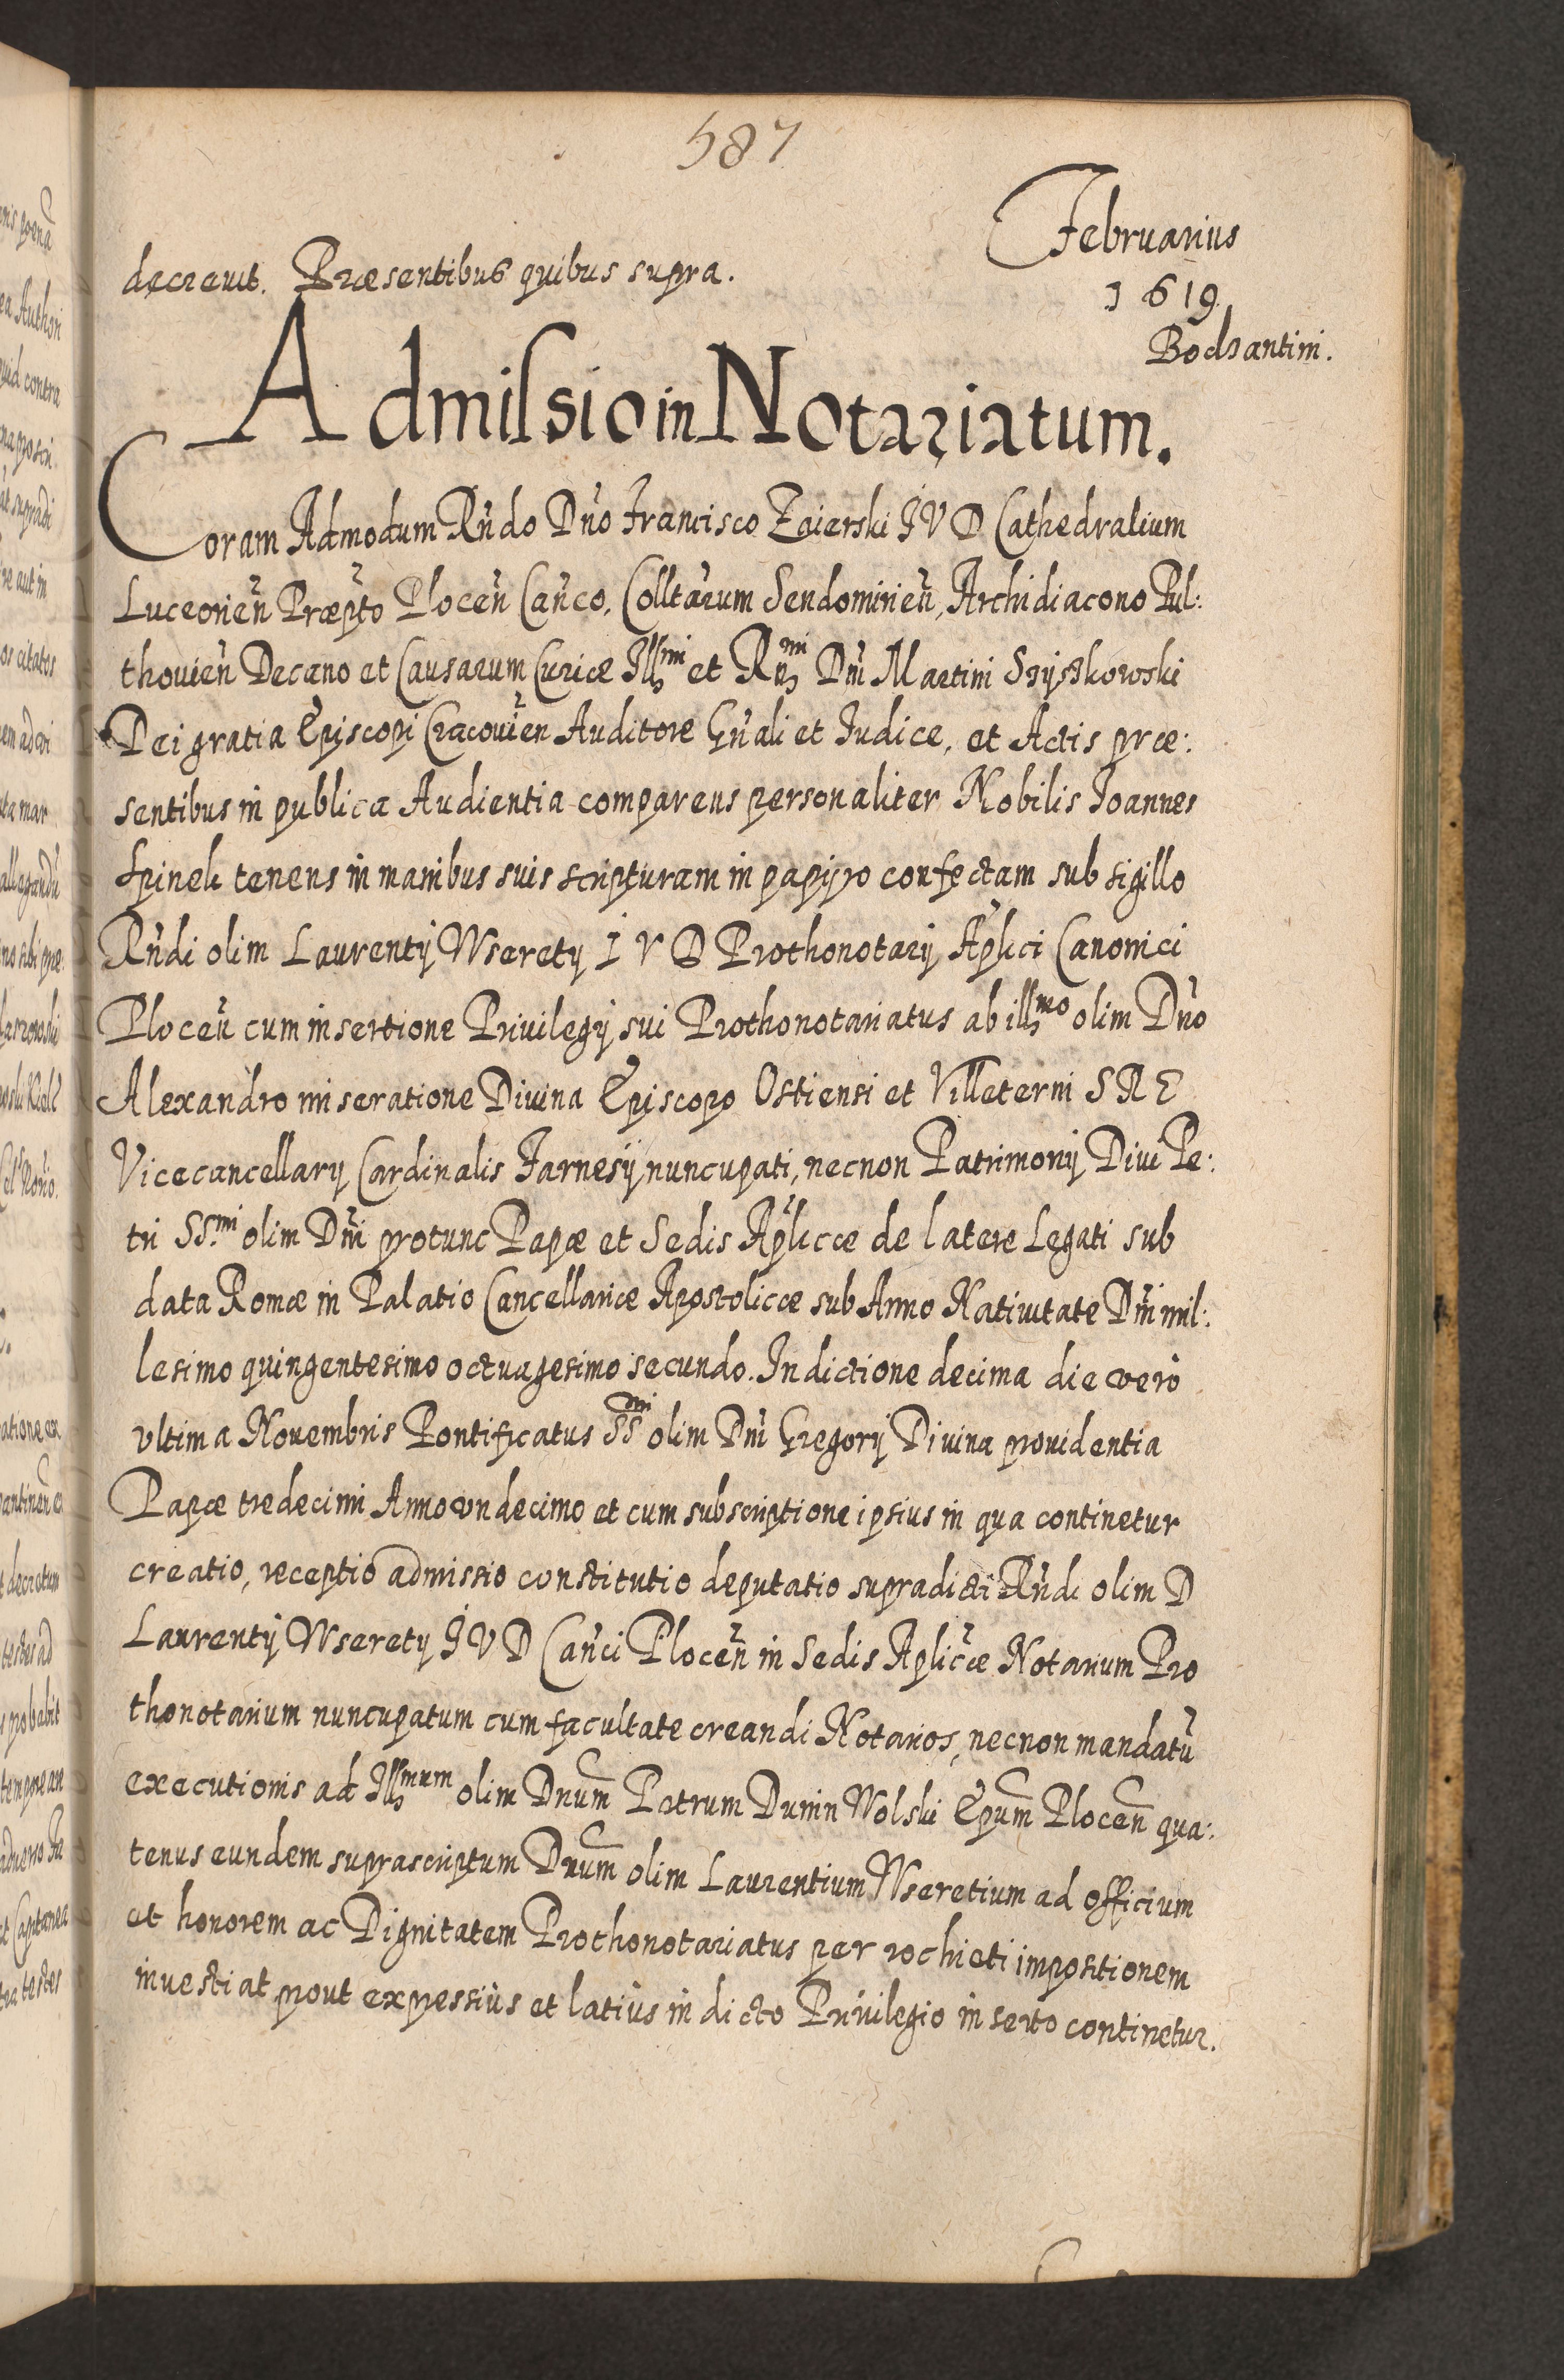 587
Februarius
1619
Bodzantini.
decreuit. Præsentibus quibus supra.
Admissio in Notariatum.
Coram Admodum Rndo Dno Francisco Zaierski I V D Cathedralium
Luceorien Præpto Plocen Canco, Colltarum Sendomirien, Archidiacono Pul:
thouien Decano et Causarum Curiæ Illmi et Rnmi Dni Martini Szÿszkowski
Dei gratia Episcopi Cracouien Auditore Gnali et Iudice, et Actis præ:
sentibus in publica Audientia comparens personaliter Nobilis Ioannes
Spinek tenens in manibus suis scripturam in papÿro confectam sub sigillo
Rndi olim Laurentÿ Wserety I V D Prothonotarÿ Aplici Canonici
Plocen cum insertione Priuilegÿ sui Prothonotariatus ab illmo olim Dno
Alexandro miseratione Diuina Episcopo Ostiensi et Villeterni S R E
Vicecancellarÿ Cardinalis Farnesÿ nuncupati, necnon Patrimonÿ Diui Pe:
tri SSmi olim Dni protunc Papæ et Sedis Aplicæ de latere Legati sub
data Romæ in Palatio Cancellariæ Apostolicæ sub Anno Natiuitate Dni mil:
lesimo quingentesimo octuagesimo secundo. Indictione decima die vero
vltima Nouembris Pontificatus SSmi olim Dni Gregorÿ Diuina prouidentia
Papæ tredecimi Anno vndecimo et cum subscriptione ipsius in qua continetur
creatio, receptio admissio constitutio deputatio supradicti Rndi olim D
Laurentÿ Wserety I V D Canci Plocen in Sedis Aplicæ Notarium Pro
thonotarium nuncupatum cum facultate creandi Notarios, necnon mandatu
executionis ad Illmum olim Dnum Petrum Dunin Wolski Epum Plocen qua:
tenus eundem suprascriptum Dnum olim Laurentium Wseretium ad officium
et honorem ac Dignitatem Prothonotariatus per rochieti impositionem
inuestiat prout expressius et latius in dicto Priuilegio inserto continetur.